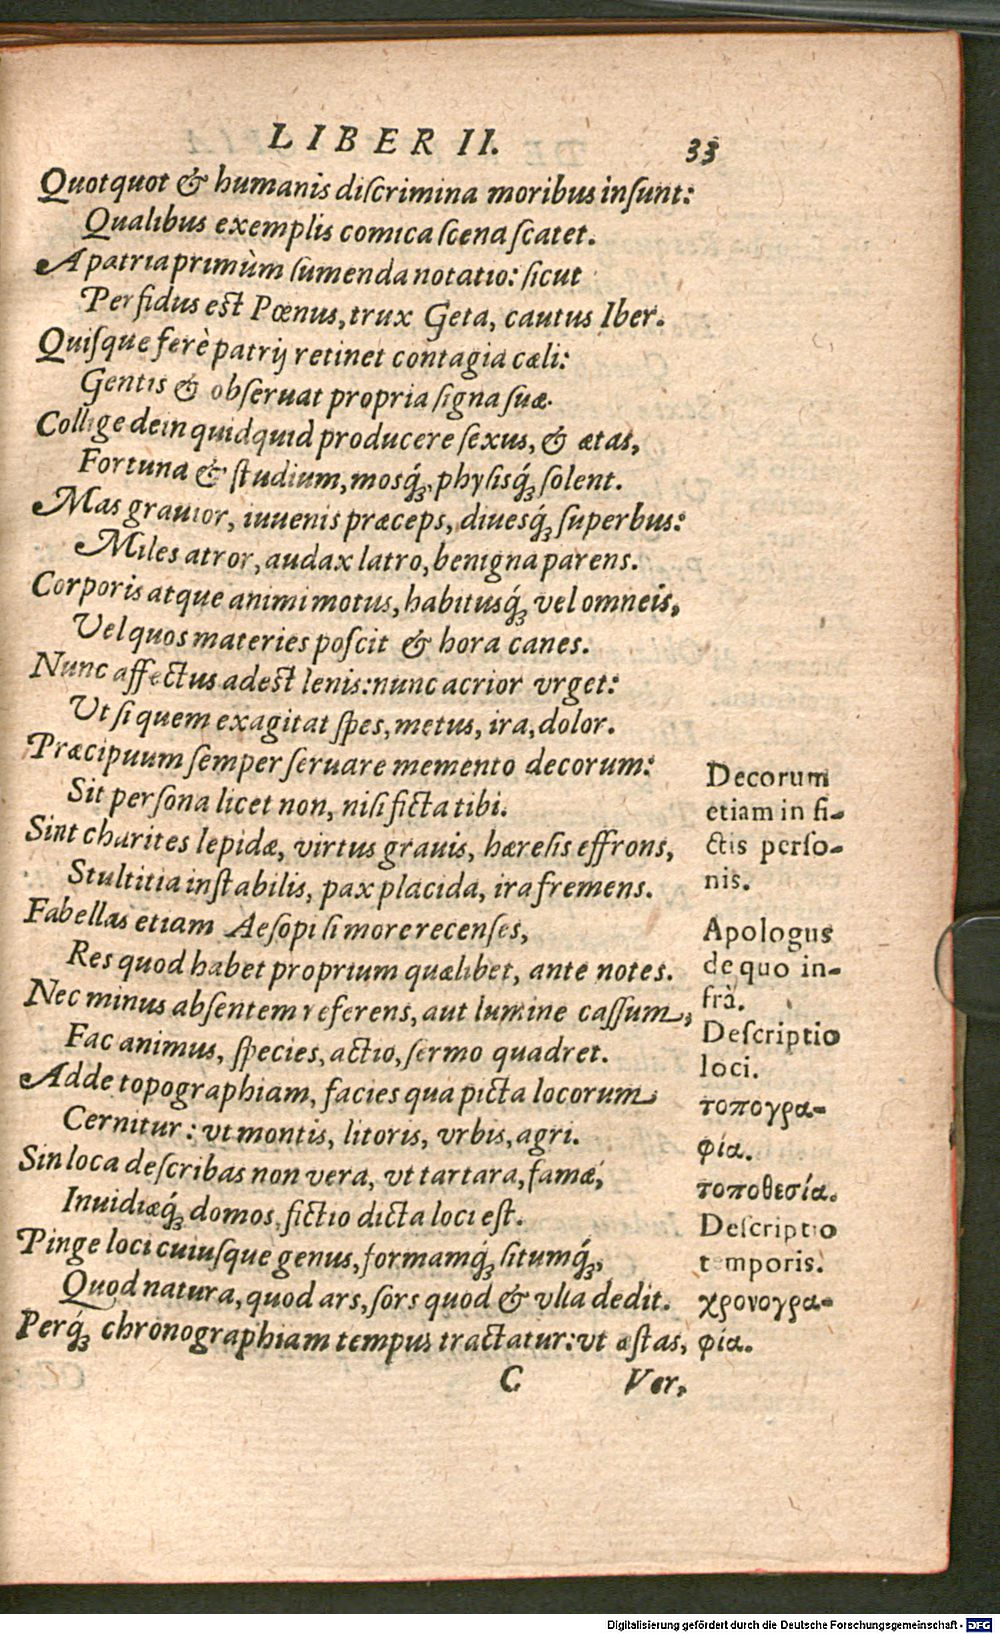 LIBER II. 33
Quotquot & humanis diſcrimina moribus inſunt:
Qualibus exemplis comica ſcena ſcatet.
A patria primùm ſumenda notatio: ſicut
Perfidus eſt Pœnus, trux Geta, cautus Iber.
Quiſque ferè patrij retinet contagia cæli:
Gentis & obſeruat propria ſigna ſuæ.
Collige dein quidquid producere ſexus, & ætas,
Fortuna & ſtudium, mosq́ꝫ, phyſisq́ꝫ ſolent.
Mas grauior, iuuenis præceps, diuesq́ꝫ ſuperbus:
Miles atror, audax latro, benigna parens.
Corporis atque animi motus, habitusq́ꝫ vel omneis,
Vel quos materies poſcit & hora canes.
Nunc affectus adeſt lenis: nunc acrior vrget:
Ut ſi quem exagitat ſpes, metus, ira, dolor.
Præcipuum ſemper ſeruare memento decorum:
Sit perſona licet non, niſi ficta tibi.
Sint charites lepidæ, virtus grauis, hæreſis effrons,
Stultitia inſtabilis, pax placida, ira fremens.
Fabellas etiam Aeſopi ſi more recenſes,
Res quod habet proprium quælibet, ante notes.
Nec minus abſentem referens, aut lumine caſſum,
Fac animus, ſpecies, actio, ſermo quadret.
Adde topographiam, facies qua picta locorum
Cernitur: vt montis, litoris, vrbis, agri.
Sin loca deſcribas non vera, vt tartara, famæ,
Inuidiæq́ꝫ domos, fictio dicta loci eſt.
Pinge loci cuiuſque genus, formamq́ꝫ ſitumq́ꝫ,
Quod natura, quod ars, ſors quod & vlla dedit.
Perq́ꝫ chronographiam tempus tractatur: vt æſtas,
C Ver,
Decorum
etiam in fi-
ctis perſo-
nis.
Apologus
de quo in-
frà.
Deſcriptio
loci.
τοπογρα-
φία.
τοποθεσία.
Deſcriptio
temporis.
χρονογρα-
φία.
Digitalisierung gefördert durch die Deutsche Forschungsgemeinschaft - DFG